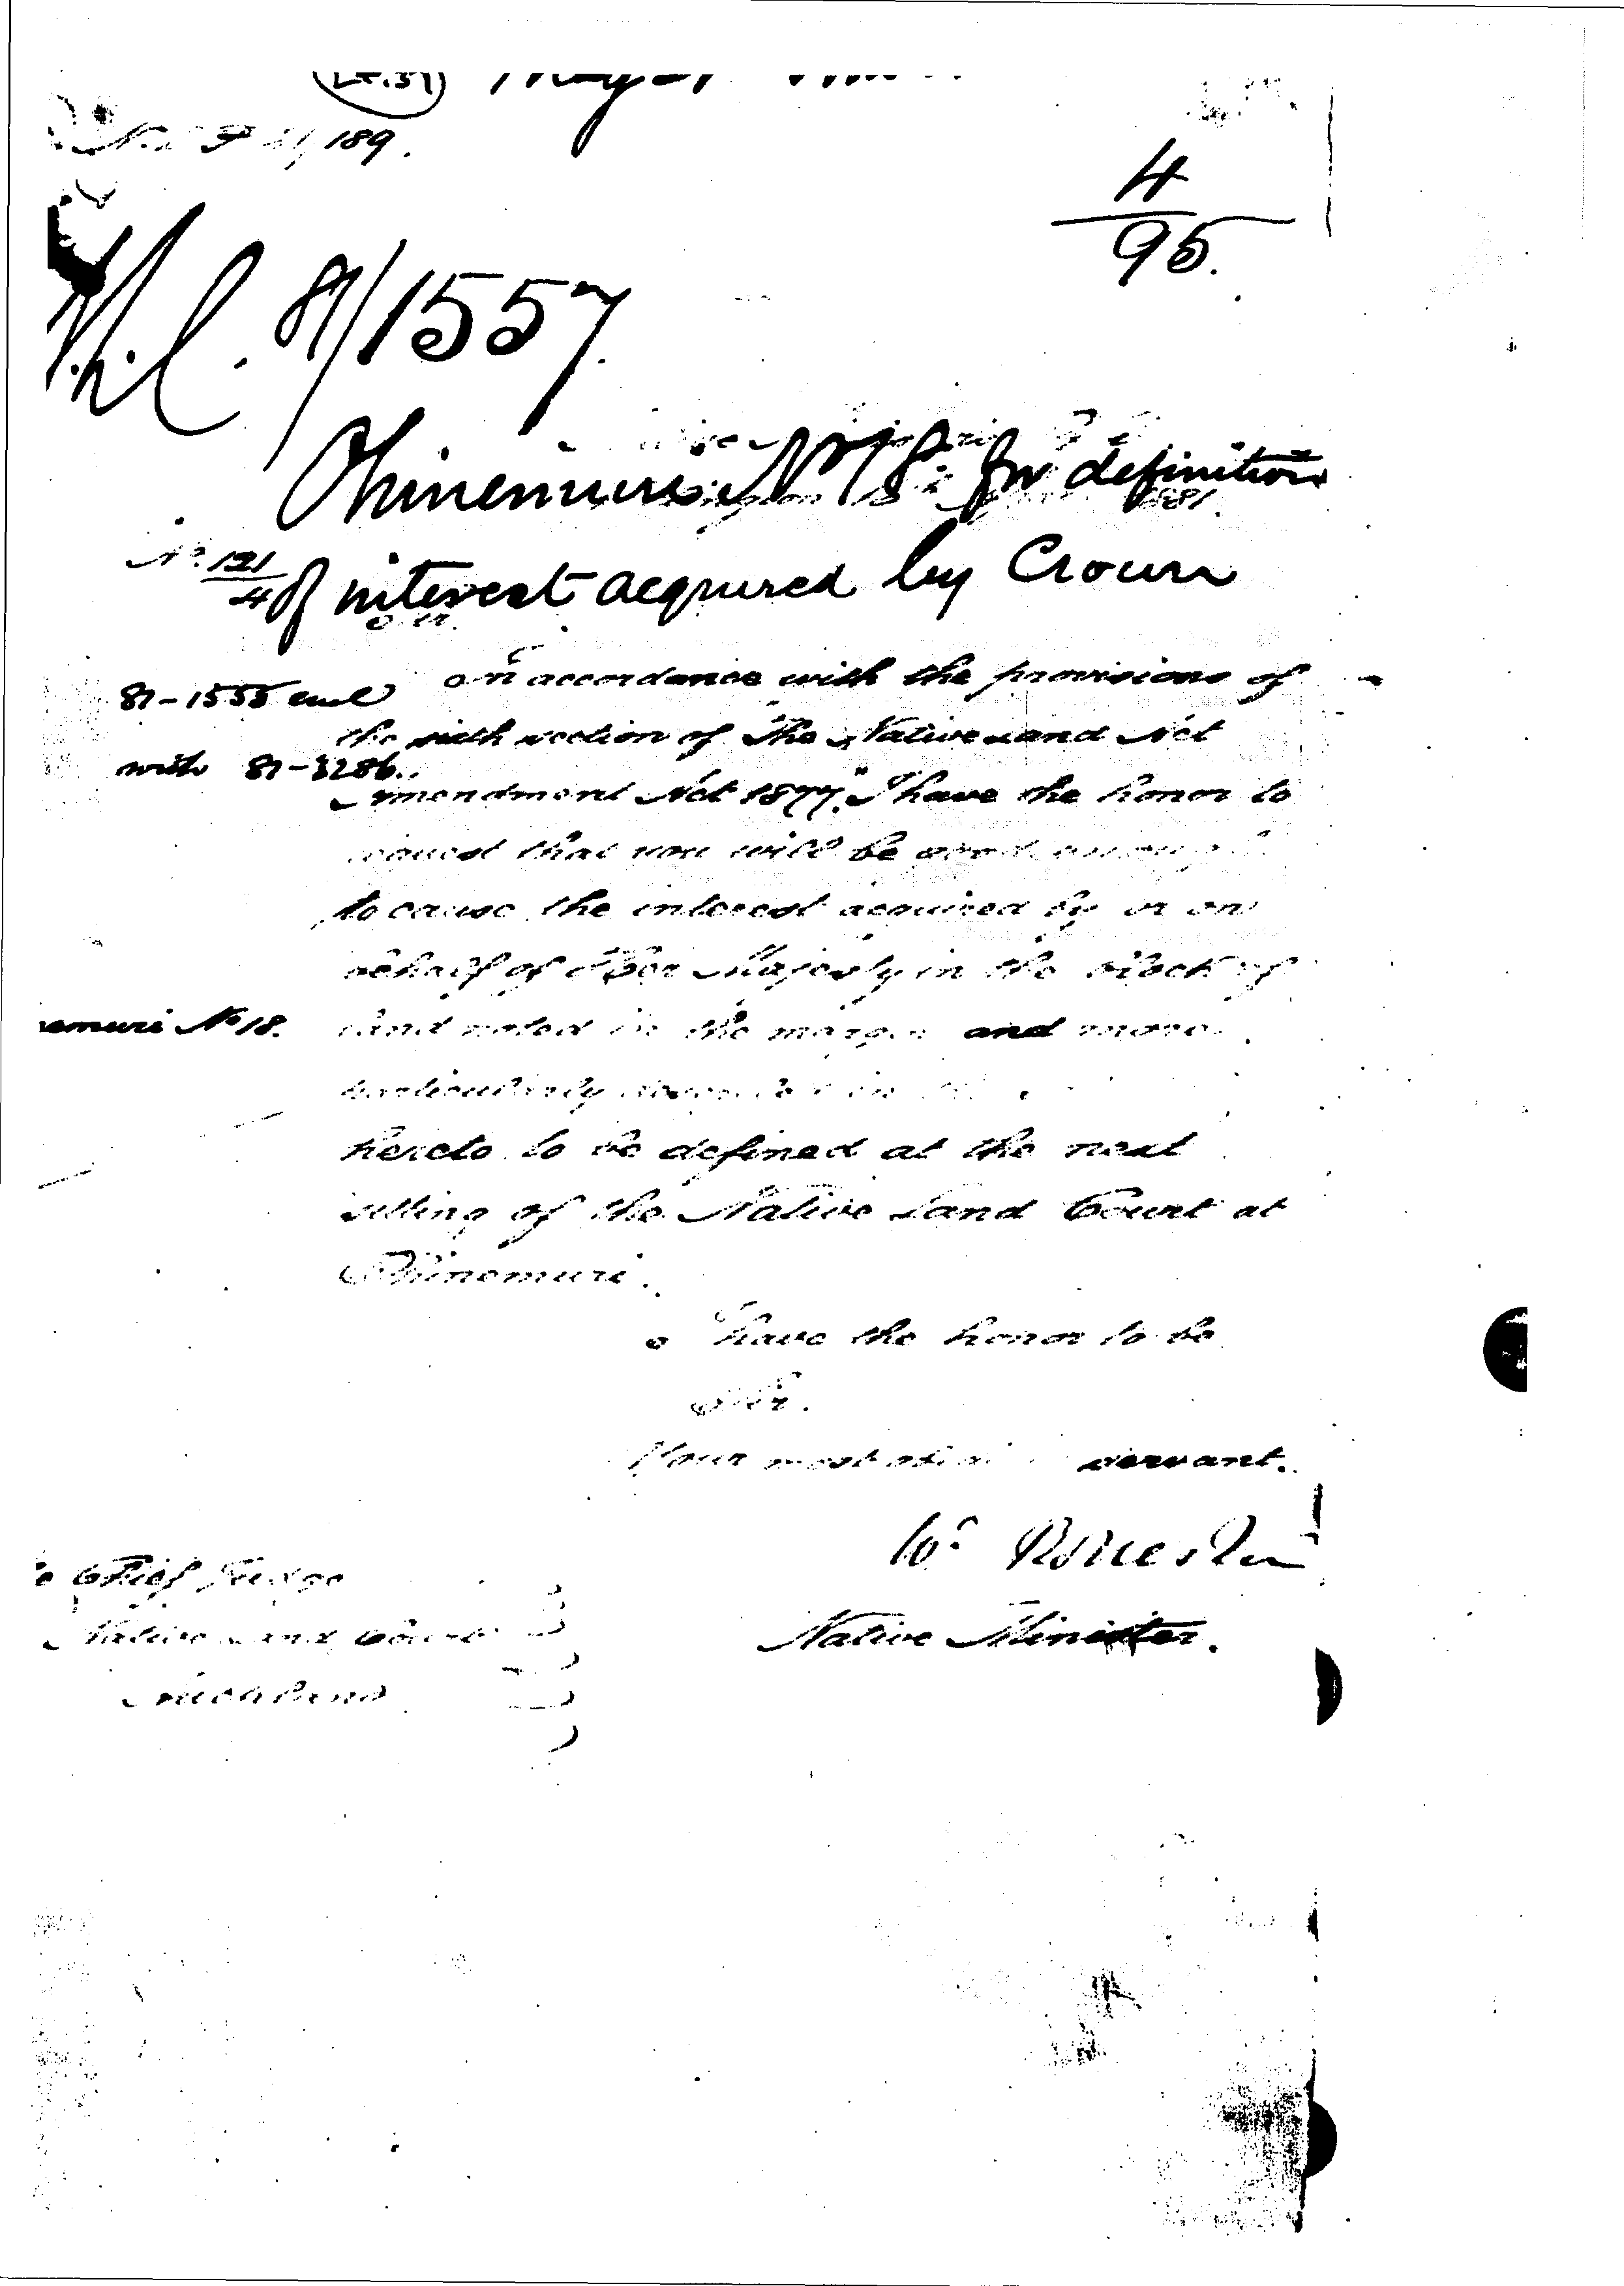 189.
4
95.
N.L. 81/1557.
Ohinemuri No 18. for definition
1881.
No. 121/4
of interest acquired by Crown
Sir.
In accordance with the provisions of
81-1555 encl
the sixth section of The Native Land Act
with 81-3286.
Amendment Act 1877." I have the honor to
request that you will be good enough
to cause the interest acquired by or on
behalf of Her Majesty in the block of
emuri No 18.
land noted in the margin and more
particularly
hereto to be defined at the next
sitting of the Native Land Court at
Ohinemuri.
I have the honor to be
Sir.
Your most servant.
W. Rolleston
Chief Judge
Native Land Court
Native Minister.
Auckland